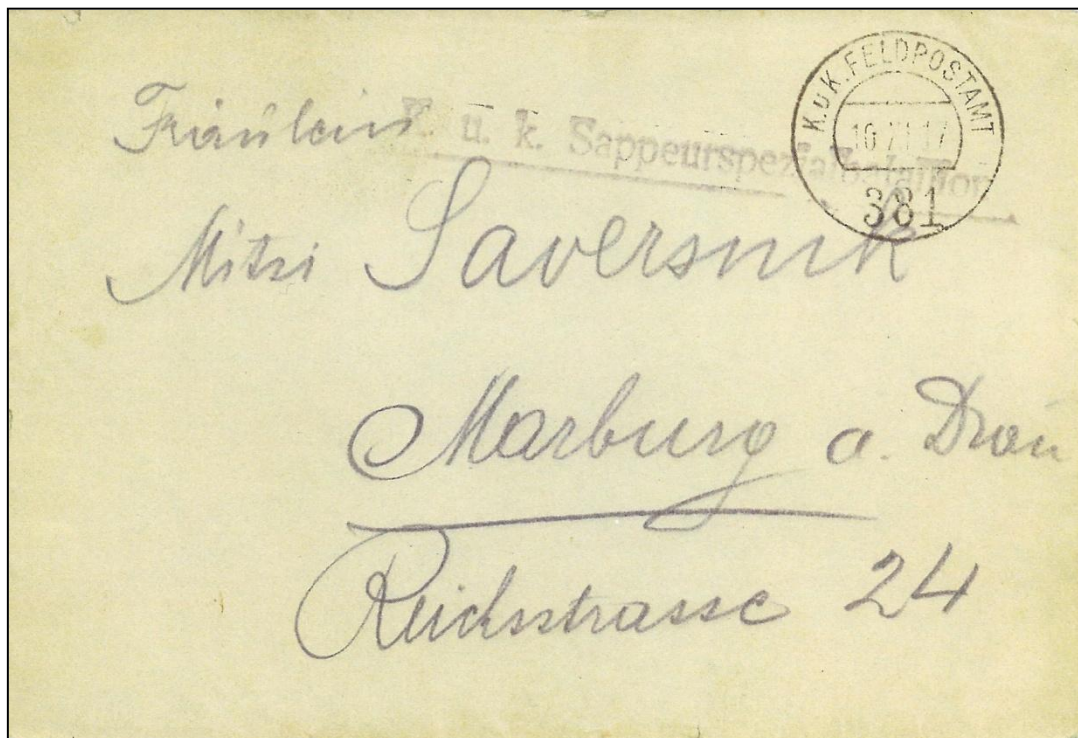 Fräulein
K. u. k. Sappeurspezialbataillon
K.u.K. FELDPOSTAMT
381
Mitzi Saversnik
Marburg a. Drau
Reichsstrasse 24